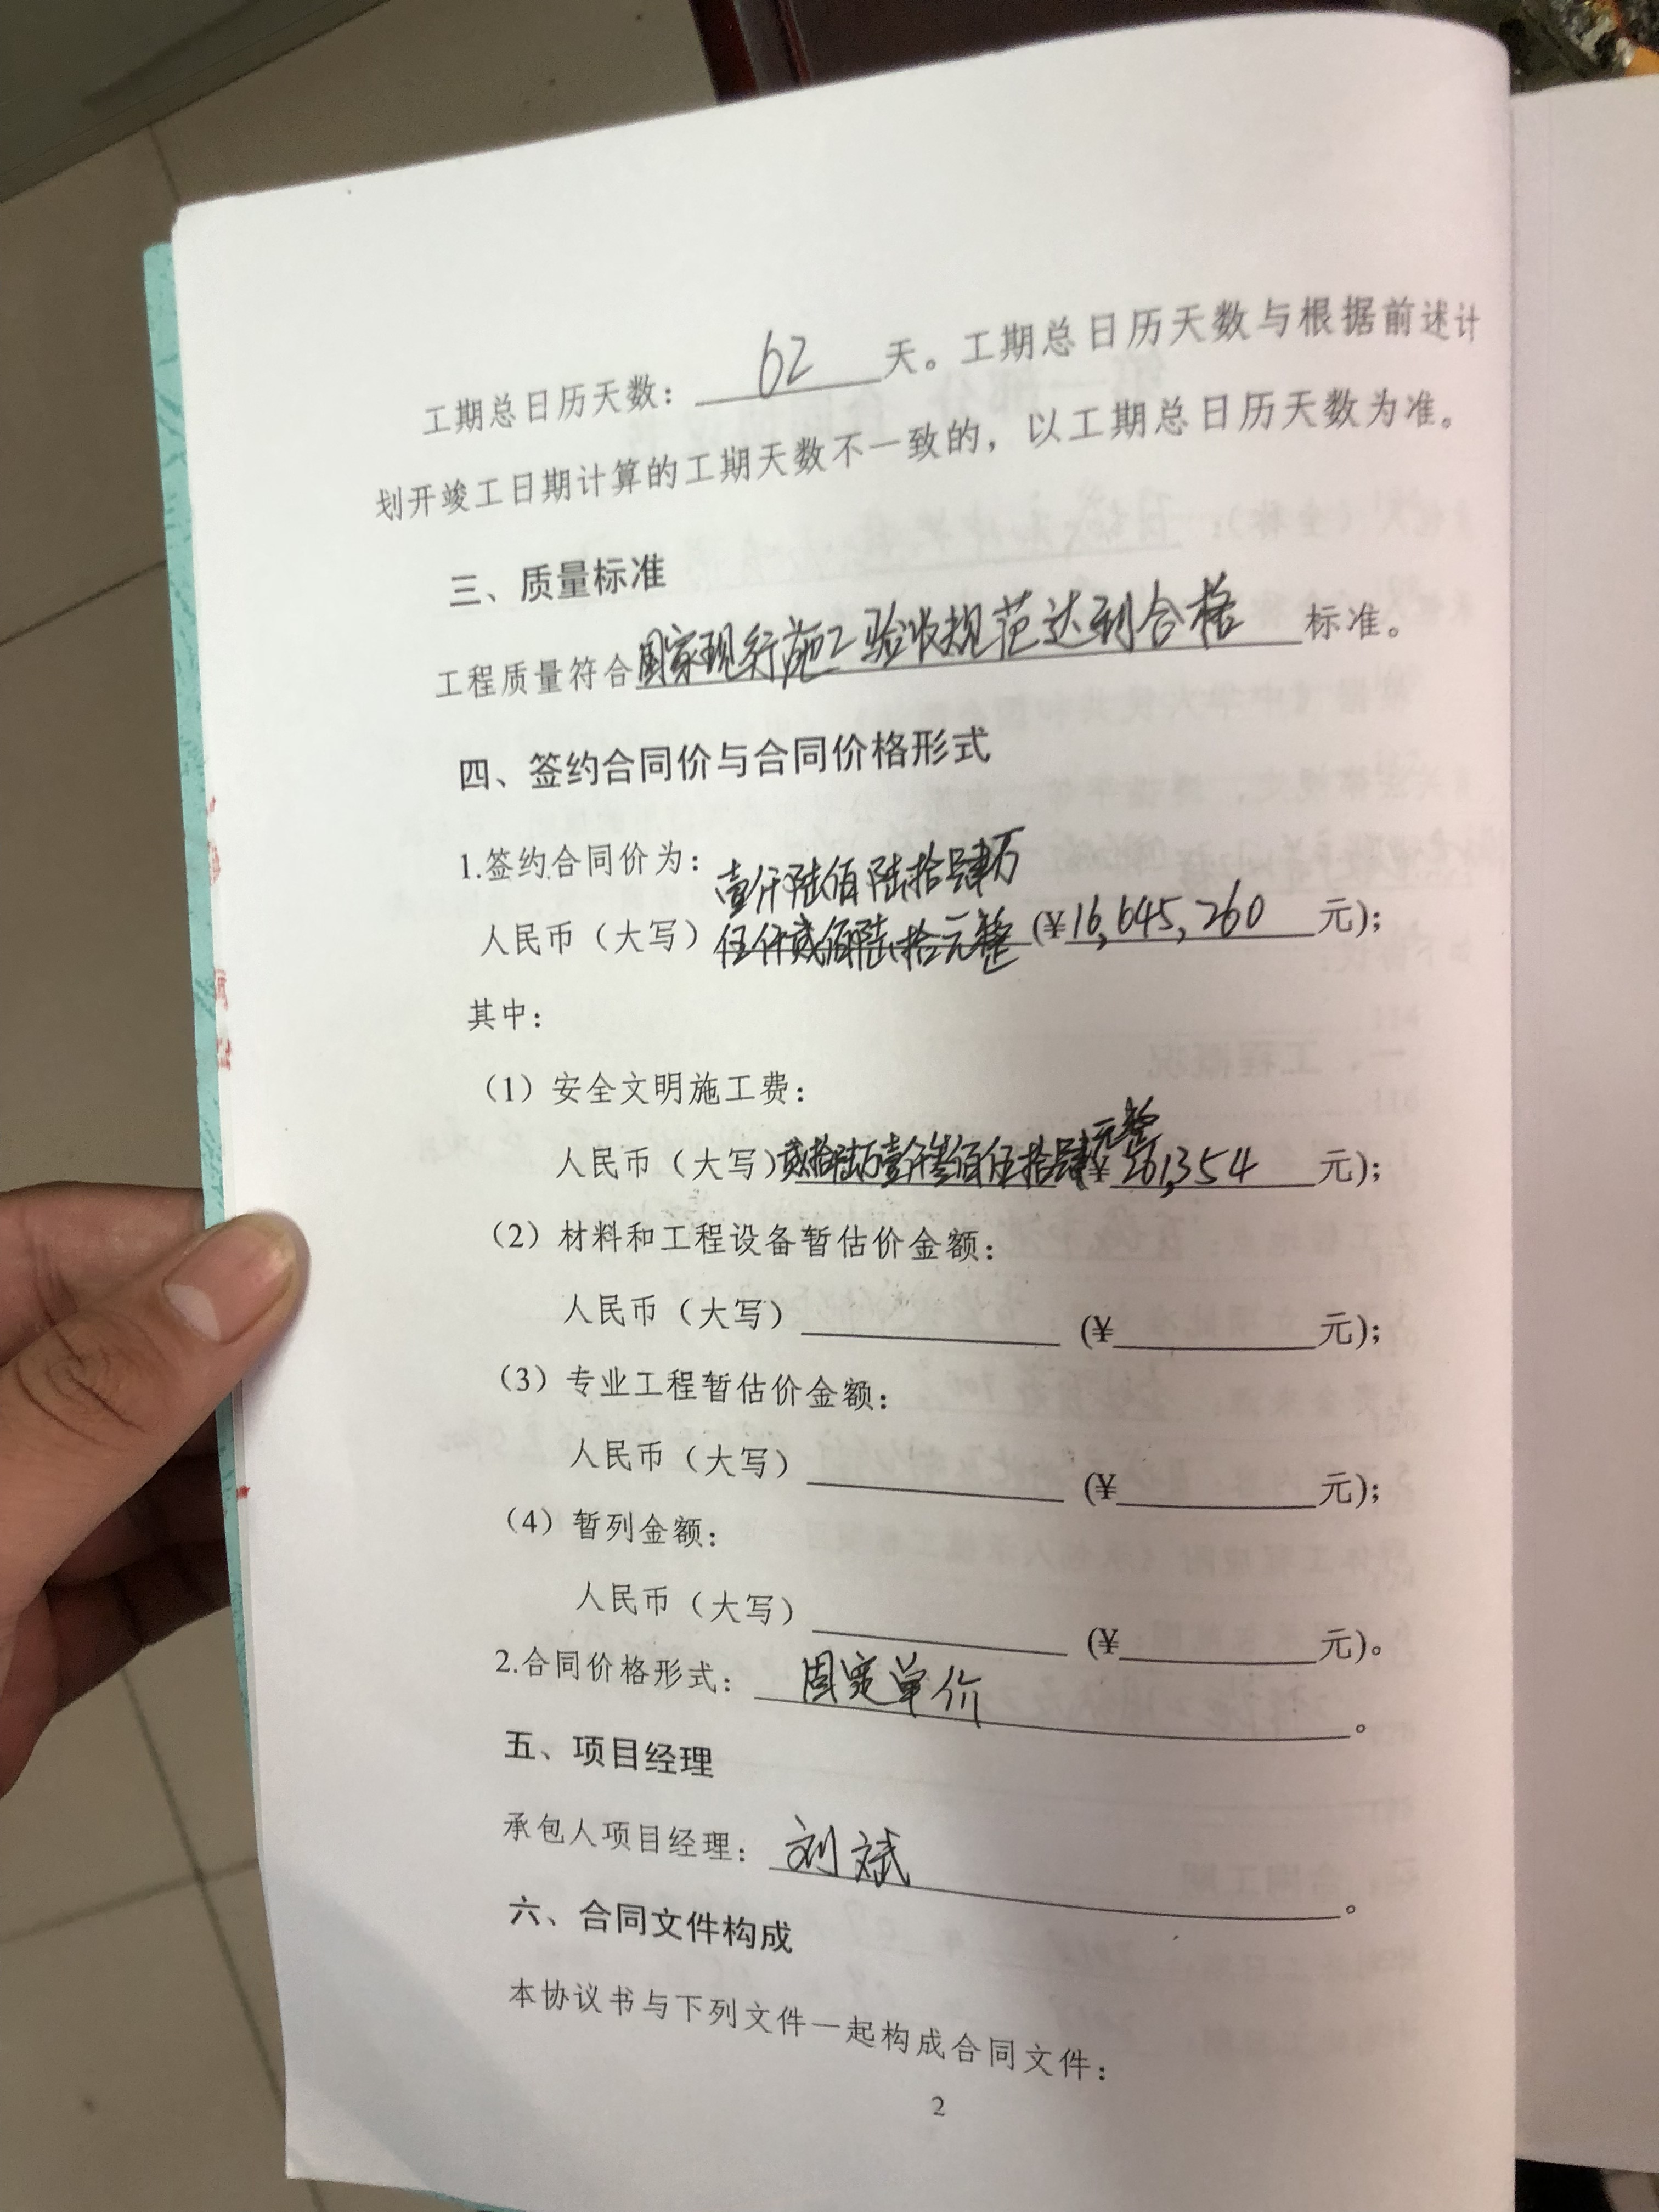 工期总日历天数：62天。工期总日历天数与根据前述计
划开竣工日期计算的工期天数不一致的，以工期总日历天数为准。
三、质量标准
工程质量符合国家现行施工验收规范达到合格标准。
四、签约合同价与合同价格形式
1.签约合同价为：
壹仟陆佰陆拾肆万
人民币（大写）伍仟贰佰陆拾元整(¥16,645,260元)；
其中：
（1）安全文明施工费：
人民币（大写）贰拾陆万壹仟叁佰伍拾肆元整(¥261,354元)；
（2）材料和工程设备暂估价金额：
人民币（大写）(¥元)；
（3）专业工程暂估价金额：
人民币（大写）(¥元)；
（4）暂列金额：
人民币（大写）(¥元)。
2.合同价格形式：固定单价。
五、项目经理
承包人项目经理：刘斌。
六、合同文件构成
本协议书与下列文件一起构成合同文件：
2